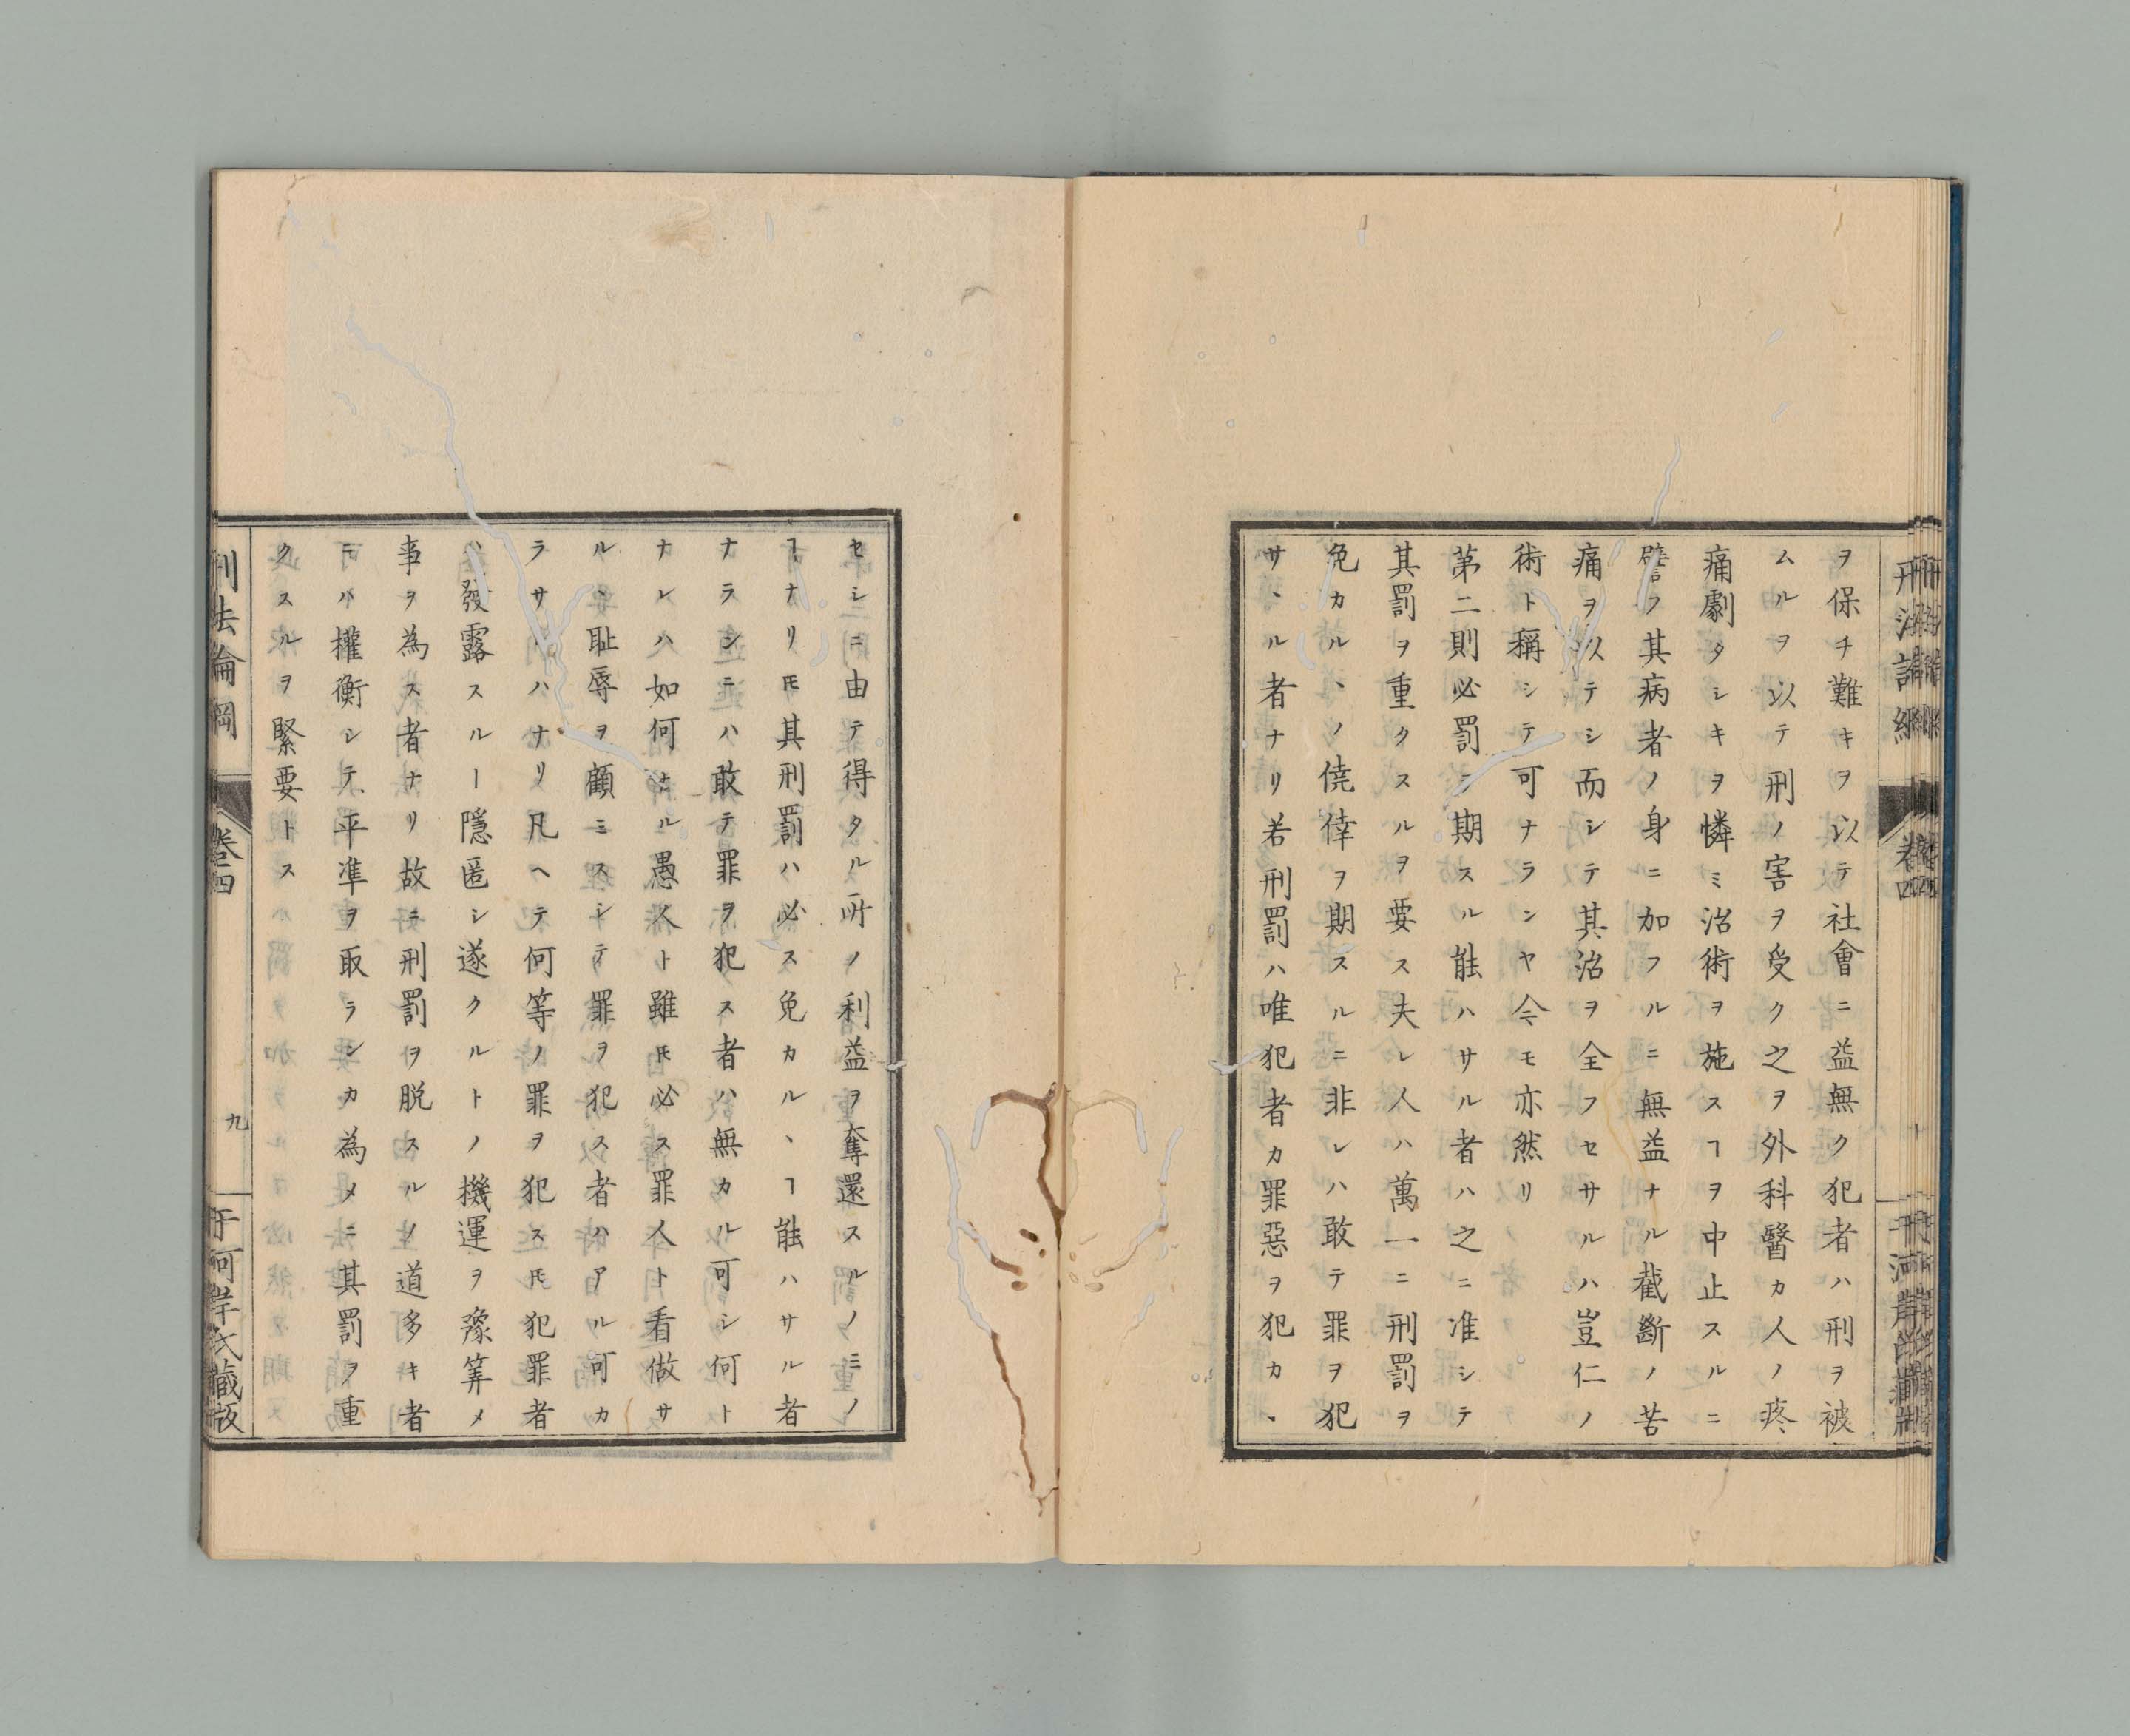 ヲ保チ難キヲ以テ社會ニ益無ク犯者ハ刑ヲ被
ムルヲ以テ刑ノ害ヲ受ク之ヲ外科醫カ人ノ疼
痛劇タシキヲ憐ミ治術ヲ施スヿヲ中止スルニ
譬フ其病者ノ身ニ加フルニ無益ナル截斷ノ苦
痛ヲ以テシ而シテ其治ヲ全フセサルハ豈仁ノ
術ト稱シテ可ナランヤ今モ亦然リ
第二則必罰ニ期スル能ハサル者ハ之ニ准シテ
其罰ヲ重クスルヲ要ス夫レ人ハ萬一ニ刑罰ヲ
免カルヽノ僥倖ヲ期スルニ非レハ敢テ罪ヲ犯
サヽル者ナリ若刑罰ハ唯犯者カ罪惡ヲ犯カヽ
セシニ由テ得タル所ノ利益ヲ奪還スルノミノ
ヿナリ𪜈其刑罰ハ必ス免カルヽヿ能ハサル者
ナランニハ敢テ罪ヲ犯ス者ハ無カル可シ何ト
ナレハ如何ナル愚人ト雖𪜈必ス罪人ト看做サ
ルヽ耻辱ヲ顧ミスシテ罪ヲ犯ス者ハアル可カ
ラサレハナリ凡ヘテ何等ノ罪ヲ犯ス𪜈犯罪者
ハ發露スルー隱匿シ遂クルトノ機運ヲ豫筭メ
事ヲ為ス者ナリ故ニ刑罰ヲ脱スルノ道多キ者
ニハ權衡シテ平準ヲ取ランカ為メニ其罰ヲ重
クスルヲ緊要トス
刑法論綱
卷四
九
于河岸氏藏版